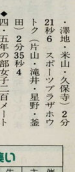 ・澤地・米山・久保寺）２分
21秒２　スポーツプラザホウ
トク（片山・滝井・星野・釜
田）２分35秒４
４・５年の部女子二百メート